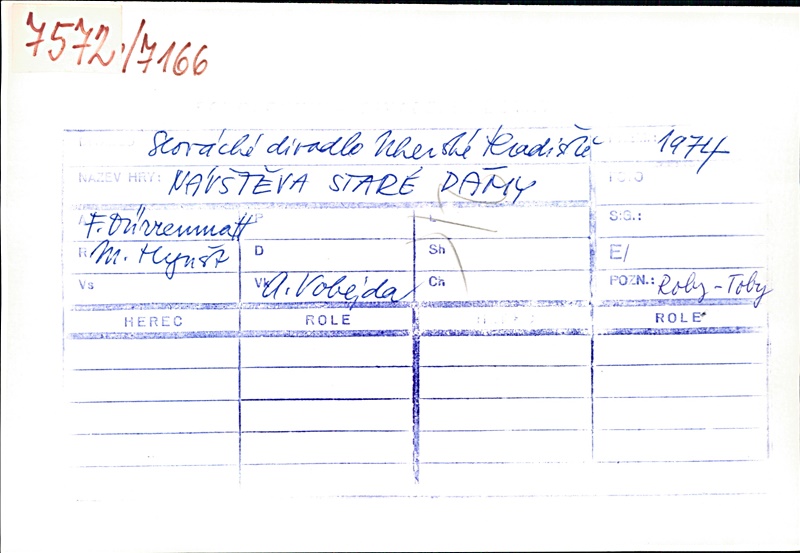 7572./7166
Slovácké divadlo Uherské Hradiště 1974
NÁZEV HRY: NÁVŠTĚVA STARÉ DÁMY
F. Dürrenmatt P L S.G.:
R M. Hynšt D Sh E/
Vs Vk A. Vobejda Ch POZN.: Roby-Toby
HEREC ROLE ROLE